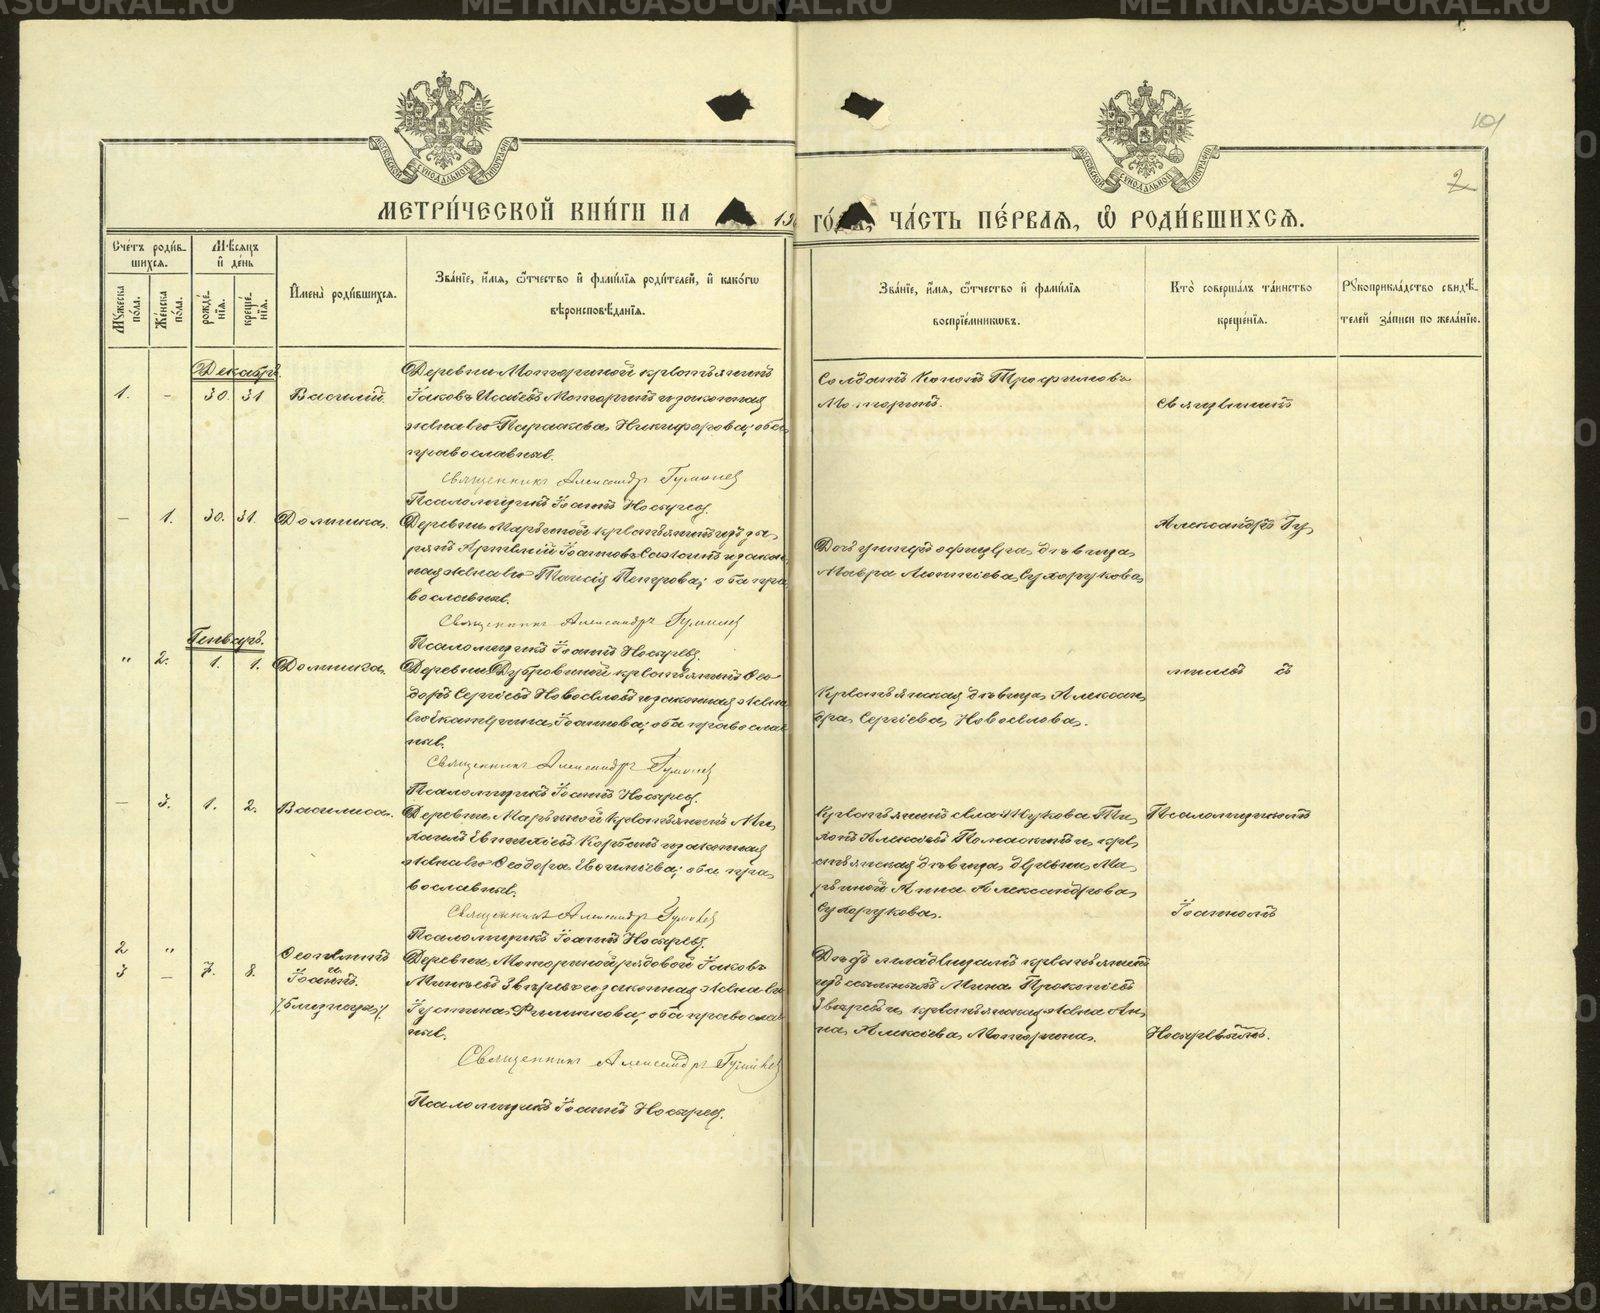 METRIKI.GASO-URAL.RU
МОСКОВСКОЙ СѴНОДАЛЬНОЙ ТИПОГРАФІИ
МОСКОВСКОЙ СѴНОДАЛЬНОЙ ТИПОГРАФІИ
101
2
МЕТРИ́ЧЕСКОЙ КНИ́ГИ НА 19
ГО́ДА, ЧА́СТЬ ПЕ́РВАЯ, Ѡ РОДИ́ВШИХСЯ.
Сче́тъ роди́в-
шихся.
Мѣсяцъ
и́ де́нь
Му́жеска по́ла.
Же́нска по́ла.
рожде́нїя.
креще́нїя.
И́мена̀ роди́вшихся.
Зва́нїе, и́мя, ѻ҆́тчество и́ фами́лїя роди́телей, и́ како́гѡ
вѣроисповѣ́данїя.
Зва́нїе, и́мя, ѻ҆́тчество и́ фами́лїя
воспрїе́мникѡвъ.
Кто̀ соверша́лъ та́инство
креще́нїя.
Рꙋкоприкла́дство свидѣ́-
телей за́писи по жела́нїю.
Декабрь.
1. - 30. 31 Василій.
Деревни Моториной крестьянинъ
Іаковъ Исаіевъ Моторинъ и законная
жена его Параскева Никифорова; оба
православные.
Священникъ Александръ
Псаломщикъ Іоаннъ Носыревъ.
Солдатъ Кононъ Трофимовъ
Моторинъ.
Священникъ
- 1. 30. 31. Домника.
Деревни Марьиной крестьянинъ изъ
Артемій Іоанновъ и закон-
ная жена его Таисія Петрова; оба пра-
вославные.
Священникъ Александръ
Псаломщикъ Іоаннъ Носыревъ.
Дочь унтеръ офицера, дѣвица
Мавра Леонтіева Сухорукова.
Александръ Гу-
Генварь.
" 2. 1. 1. Домника.
Деревни Дубровиной крестьянинъ Ѳео-
доръ Сергіевъ Новоселовъ и законная жена
его Екатерина Іоаннова; оба православ-
ные.
Священникъ Александръ
Псаломщикъ Іоаннъ Носыревъ.
Крестьянская дѣвица Алексан-
дра Сергіева Новоселова.
милевъ съ
- 3. 1. 2. Василиса.
Деревни Марьиной крестьянинъ Ми-
хаилъ и законная
жена его Ѳеодора; оба пра-
вославные.
Священникъ Александръ
Псаломщикъ Іоаннъ Носыревъ.
Крестьянинъ села Жукова Ти-
хонъ Алексіевъ и кре-
стьянская дѣвица деревни Ма-
рьиной Анна Александрова
Сухорукова.
Псаломщикомъ
Іоанномъ
2 "
3 - 7. 8. Ѳеогнитъ
и
Іоаннъ.
/близнецы/.
Деревни Моториной рядовой Іаковъ
Минеевъ Звѣревъ и законная жена его
Іустина Филиппова; оба православ-
ные.
Священникъ Александръ
Псаломщикъ Іоаннъ Носыревъ.
Дѣдъ младенцамъ крестьянинъ
изъ ссыльныхъ Мина Прокопіевъ
Звѣревъ и крестьянская жена Ан-
на Алексіева Моторина.
Носыревымъ.